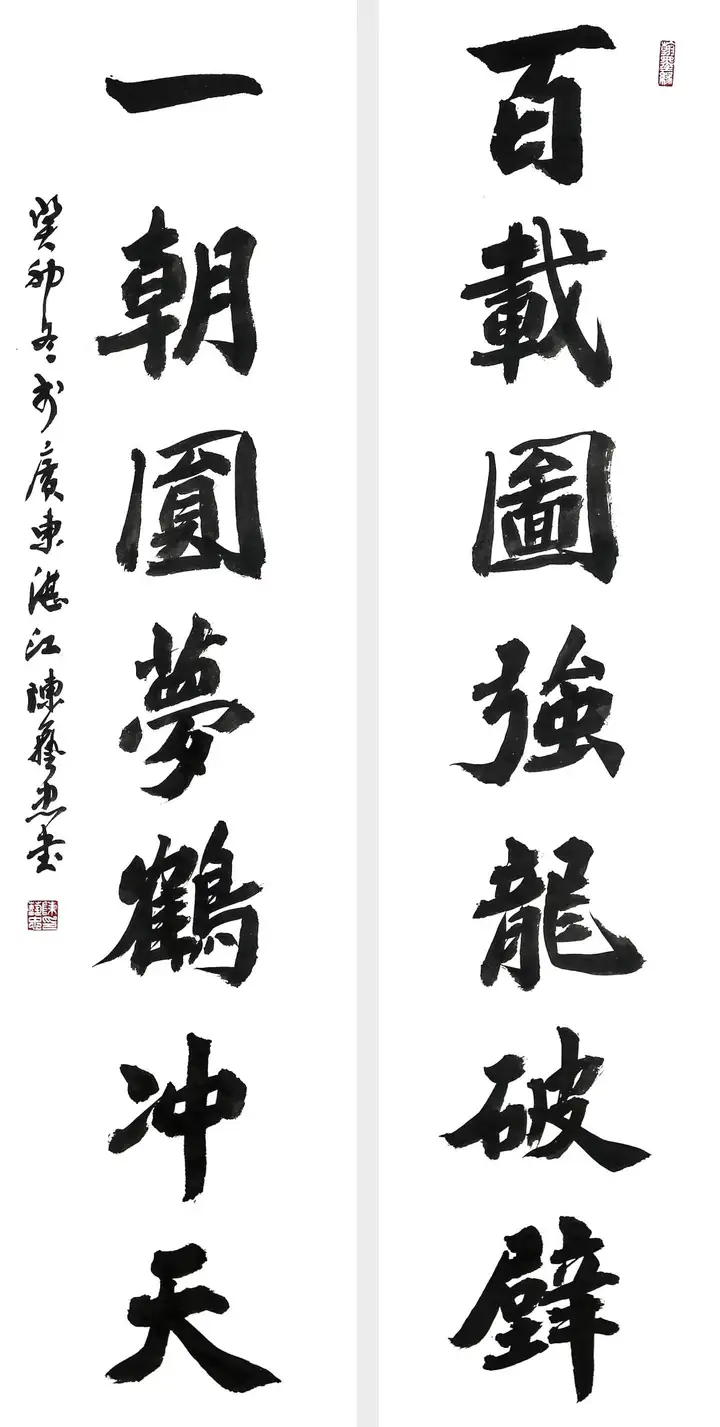 百載圖強龍破壁
一朝圓夢鶴冲天
癸卯冬於廣東湛江陳藝忠書